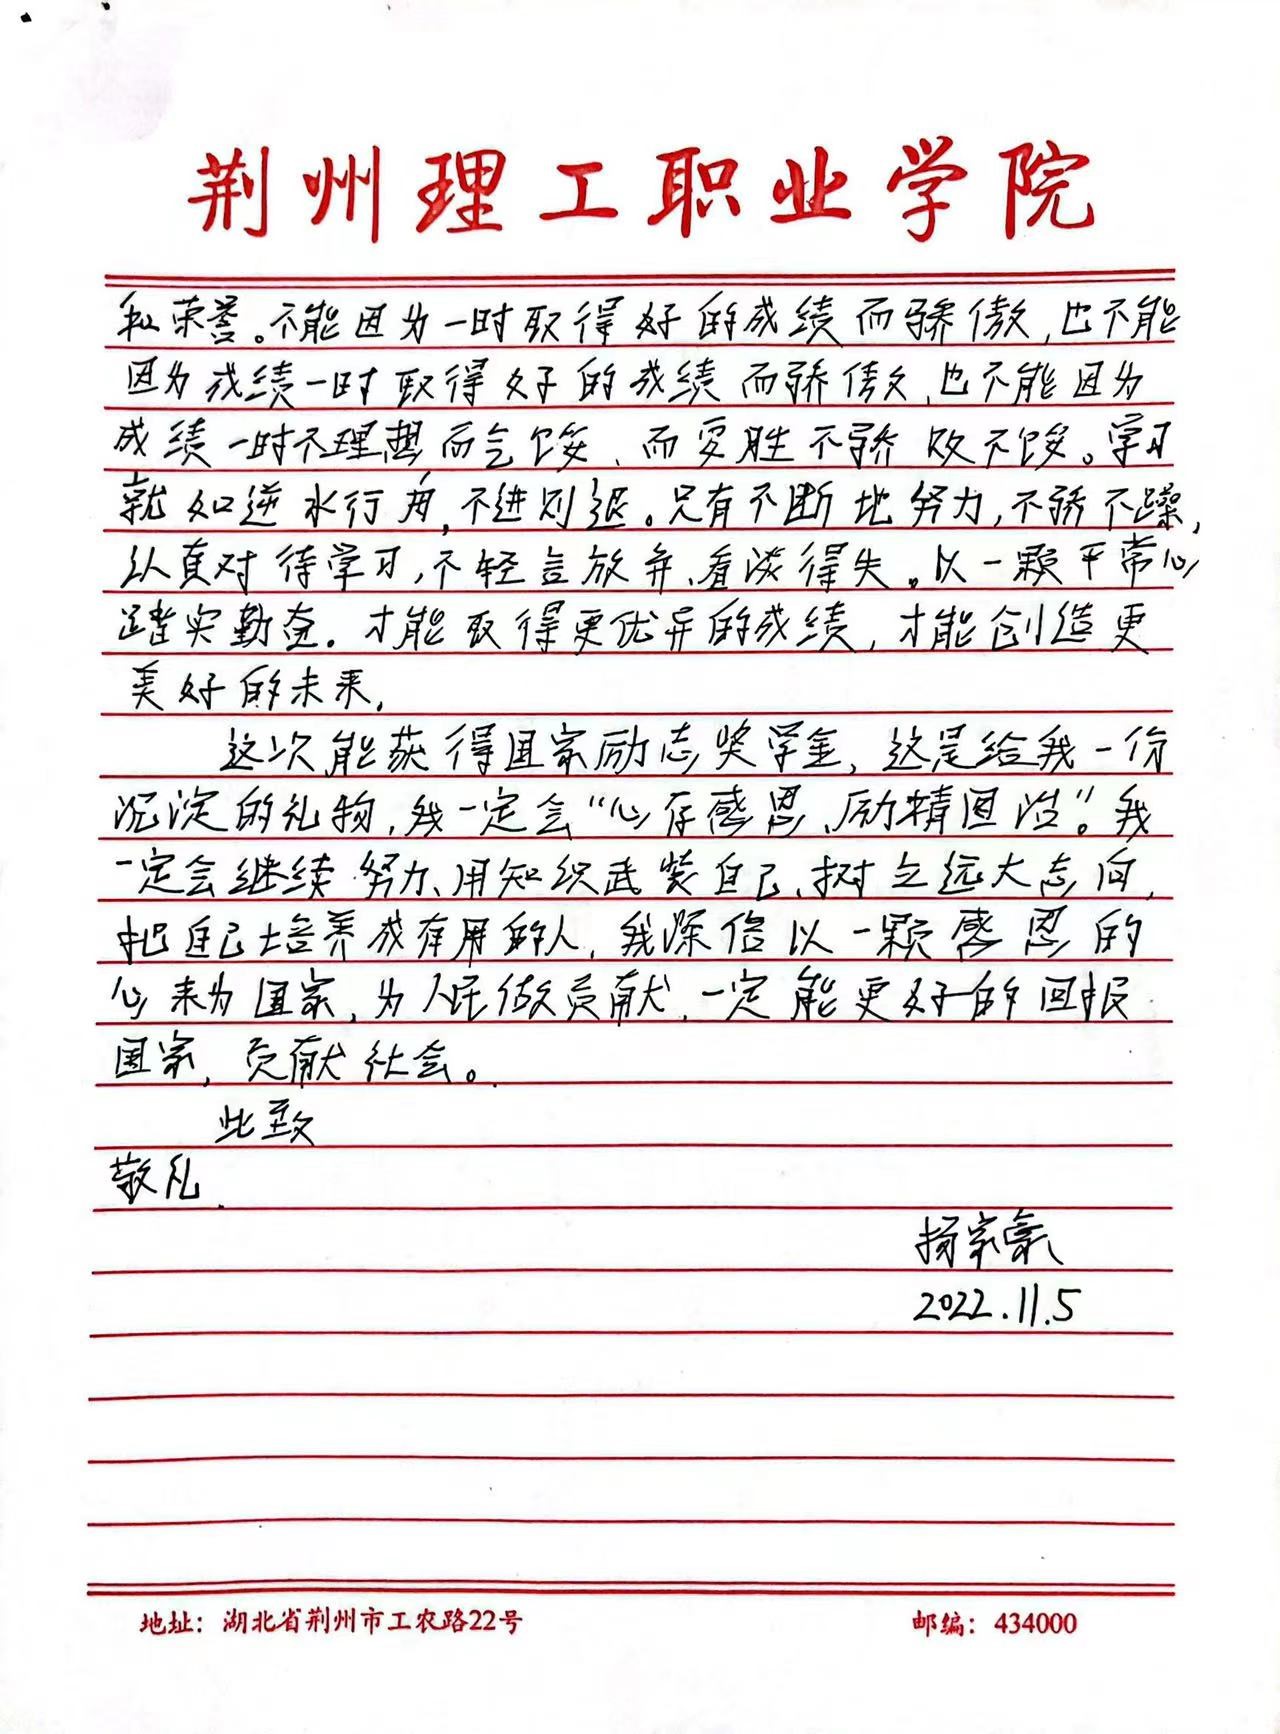 荆州理工职业学院
和荣誉。不能因为一时取得好的成绩而骄傲,也不能
因为成绩一时取得好的成绩而骄傲、也不能因为
成绩一时不理想而气馁、而要胜不骄败不馁。学习
就如逆水行舟,不进则退。只有不断地努力,不骄不躁,
认真对待学习,不轻言放弃、看淡得失。以一颗平常心
踏实勤奋。才能取得更优异的成绩,才能创造更
美好的未来.
这次能获得国家励志奖学金,这是给我一份
沉淀的礼物,我一定会“心存感恩、励精图治”。我
一定会继续努力、用知织武装自己、树立远大志向,
把自己培养成有用的人,我深信以一颗感恩的
心来为国家,为人民做贡献,一定能更好的回报
国家,贡献社会。
此致
敬礼
杨家豪
2022.11.5
地址:湖北省荆州市工农路22号
邮编:434000